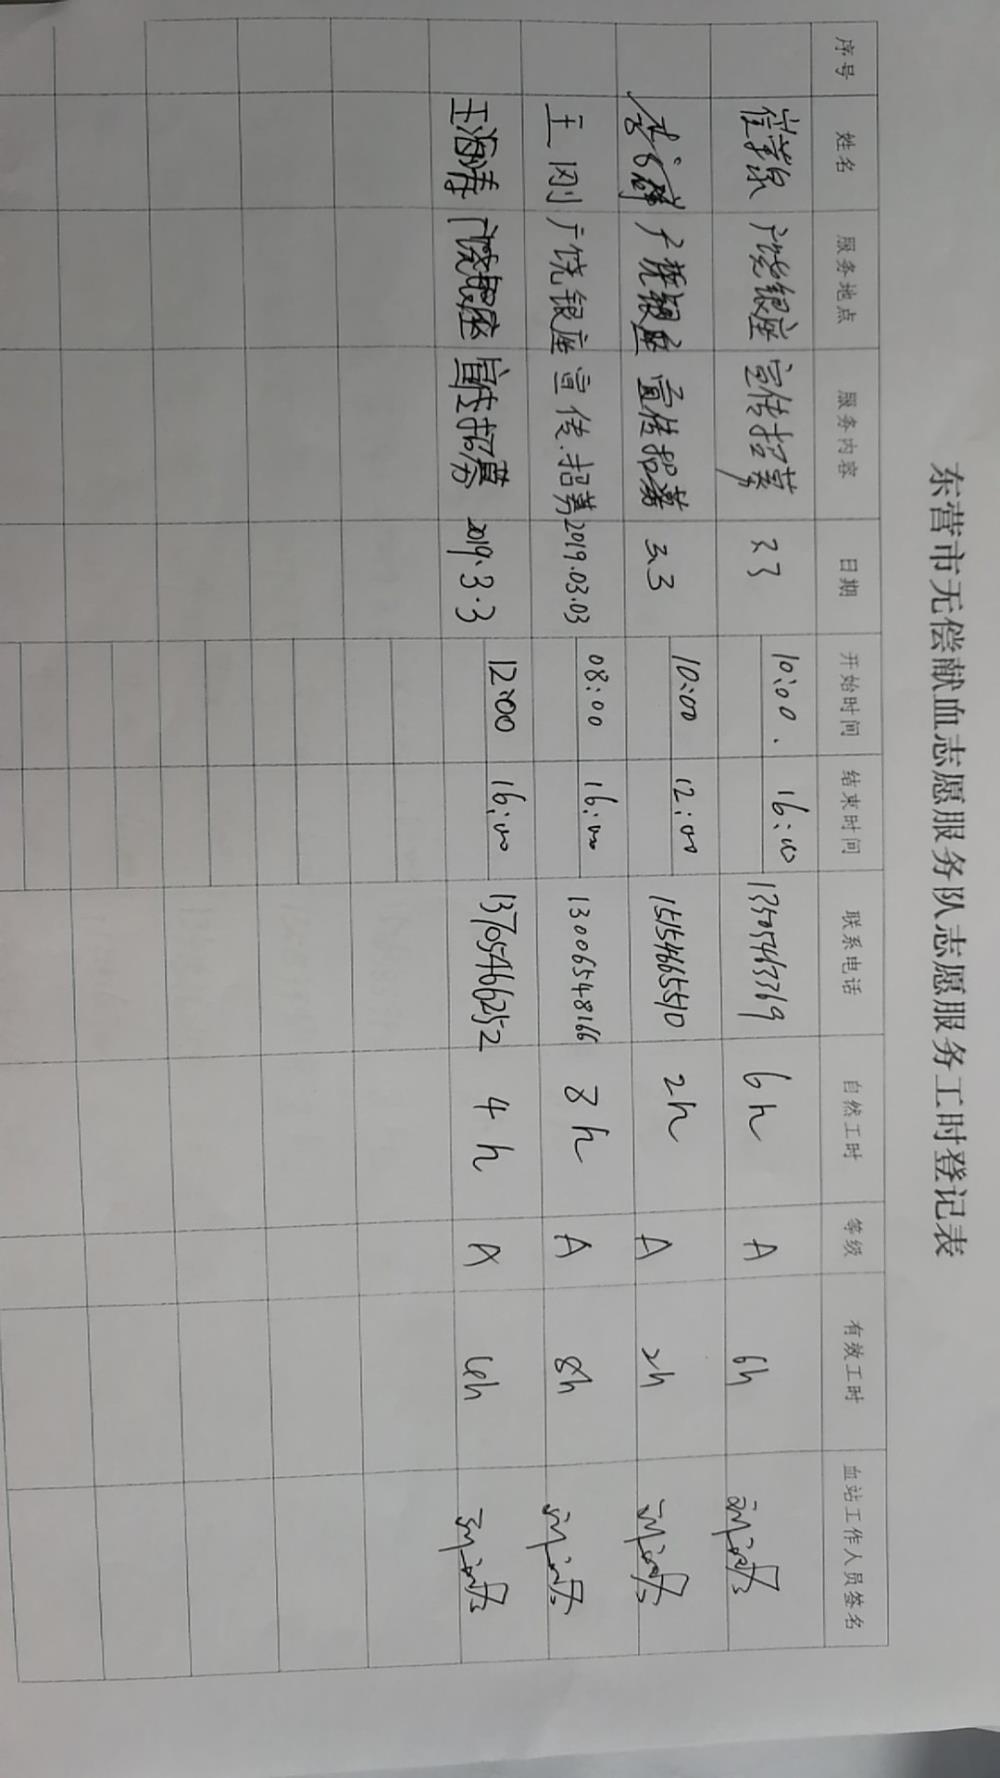 东营市无偿献血志愿服务队志愿服务工时登记表
序号 姓名 服务地点 服务内容 日期 开始时间 结束时间 联系电话 自然工时 等级 有效工时 血站工作人员签名
广饶银座 宣传招募 3 3 10:00. 16:00 13505463369 6h A 6h
广饶银座 宣传招募 3.3 10:00 12:00 15154665510 2h A 2h
王刚 广饶银座 宣传.招募 2019.03.03 08:00 16:00 13006548166 8h A 8h
王海涛 广饶银座 宣传招募 2019.3.3 12:00 16:00 13705466252 4h A 4h